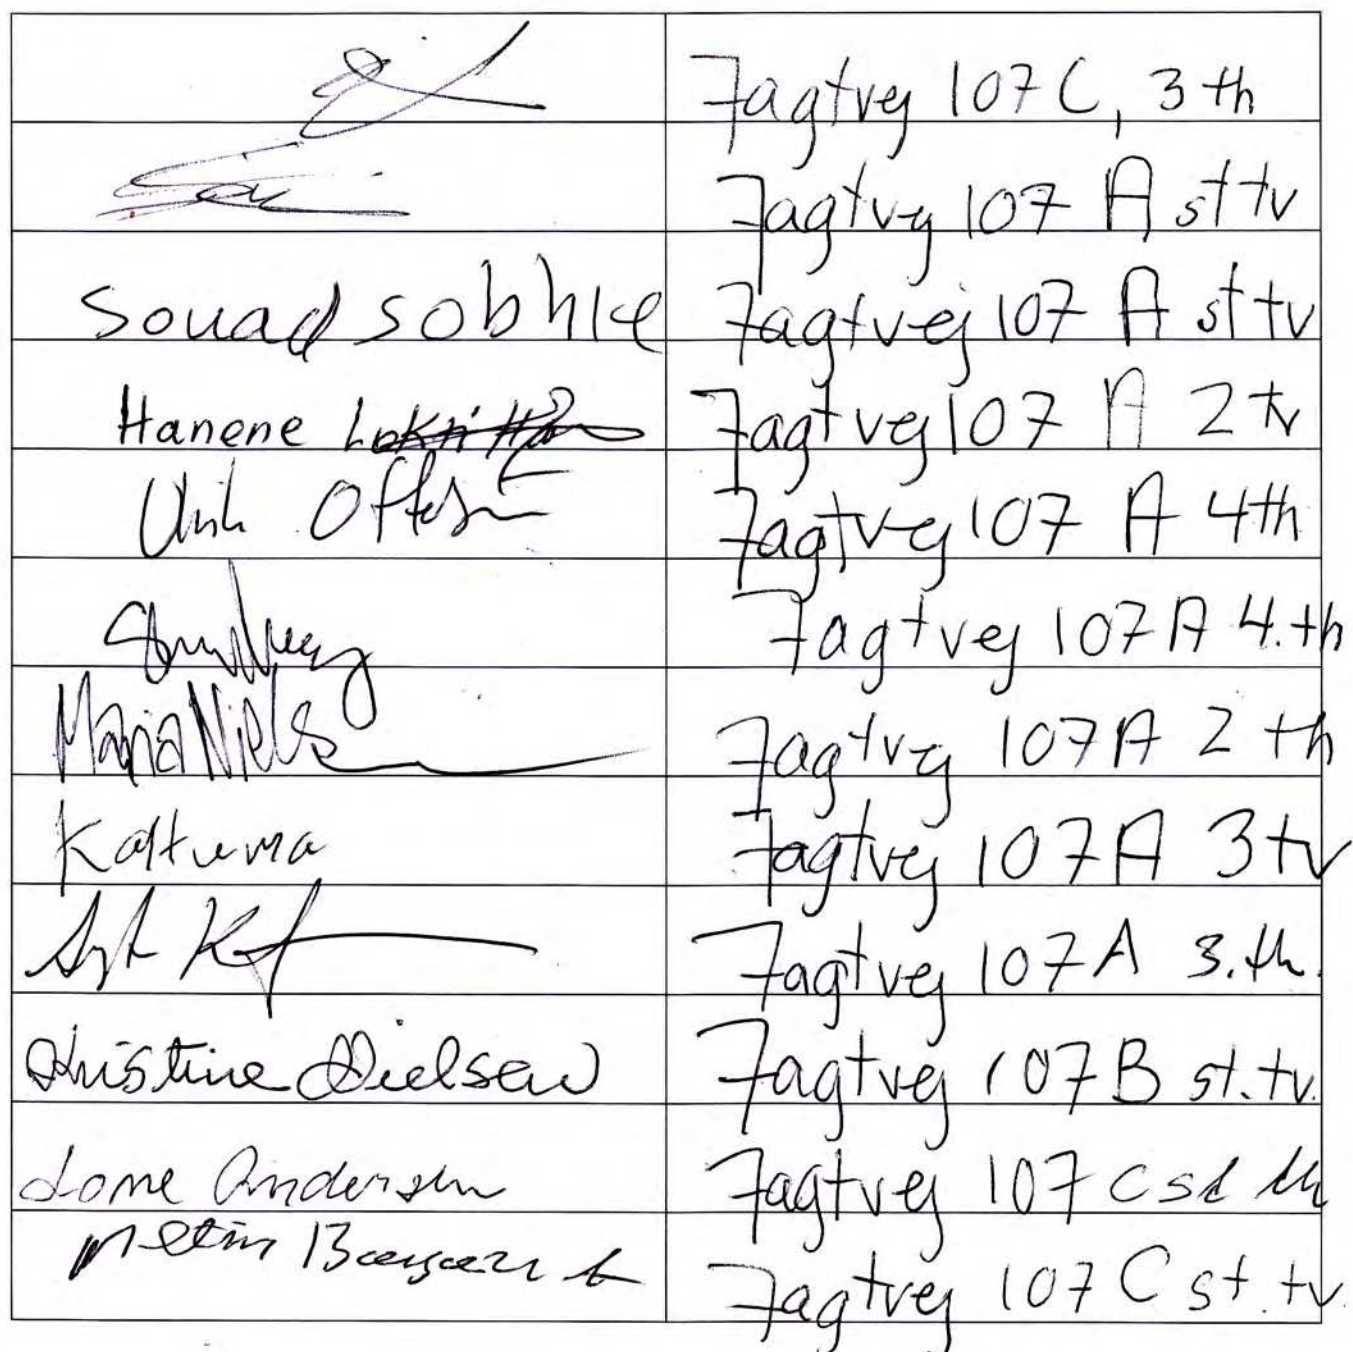 Jagtvej 107 C, 3 th
Jagtvej 107 A st tv
Souad sobhie Jagtvej 107 A st tv
Hanene Jagtvej 107 A 2 tv
Jagtvej 107 A 4 th
Jagtvej 107 A 4. th
Maria Niels Jagtvej 107 A 2 th
Jagtvej 107 A 3 tv
Jagtvej 107 A 3. th.
Kristine Nielsen Jagtvej 107 B st. tv.
Lone Andersen Jagtvej 107 C st th
Metin Jagtvej 107 C st. tv.